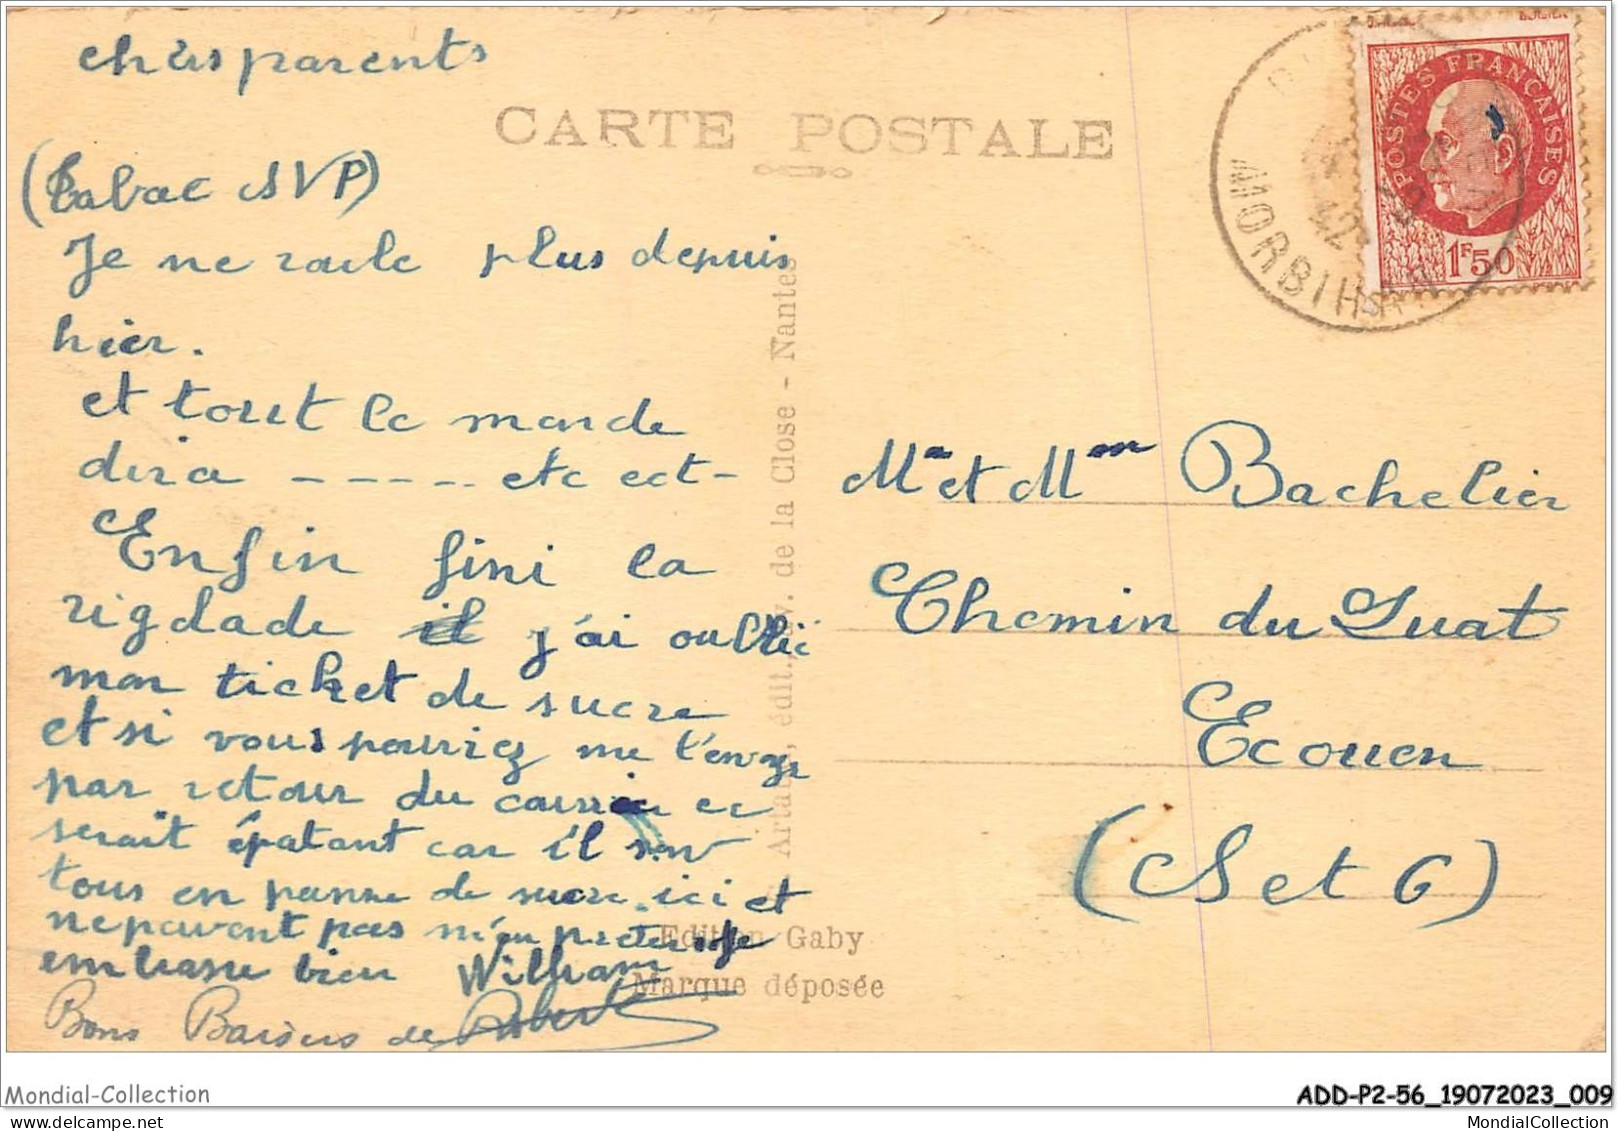 chers parents
CARTE POSTALE
(Tabac SVP)
Je ne roule plus depuis
hier.
et tout le monde
dira ------ etc ect-
Enfin fini la
rigolade il j'ai oublié
mon ticket de sucre
et si vous pourriez me l'envoyer
par retour du courrier ce
serait épatant car il son
tous en panne de sucre ici et
ne peuvent pas m'en preter je
embrasse bien William
Bons Baisers de Robert
Artaud, édit., av. de la Close - Nantes
Edition Gaby
Marque déposée
POSTES FRANÇAISES
1F50
MORBIHAN
42
Mr et Mme Bachelier
Chemin du Luat
Ecouen
(S et O)
Mondial-Collection
ADD-P2-56_19072023_009
MondialCollection